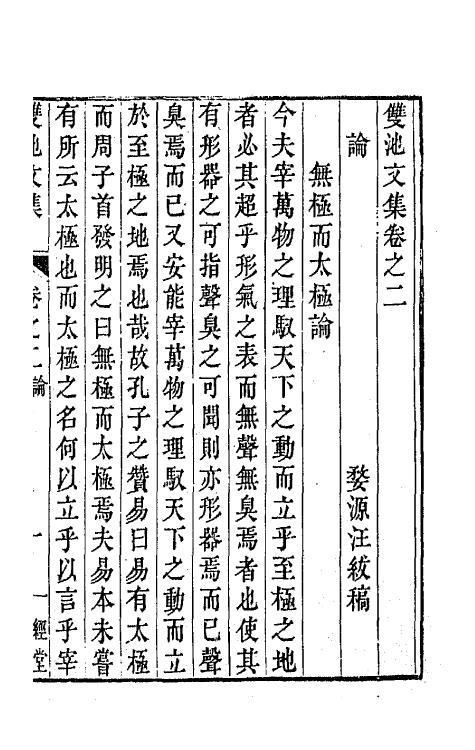 雙池文集卷之二
論
婺源汪紱稿
無極而太極論
今夫宰萬物之理馭天下之動而立乎至極之地
者必其超乎形氣之表而無聲無臭焉者也使其
有形器之可指聲臭之可聞則亦形器焉而已聲
臭焉而已又安能宰萬物之理馭天下之動而立
於至極之地焉也哉故孔子之贊易曰易有太極
而周子首發明之曰無極而太極焉夫易本未嘗
有所云太極也而太極之名何以立乎以言乎宰
雙池文集
卷之二論
一
一經堂